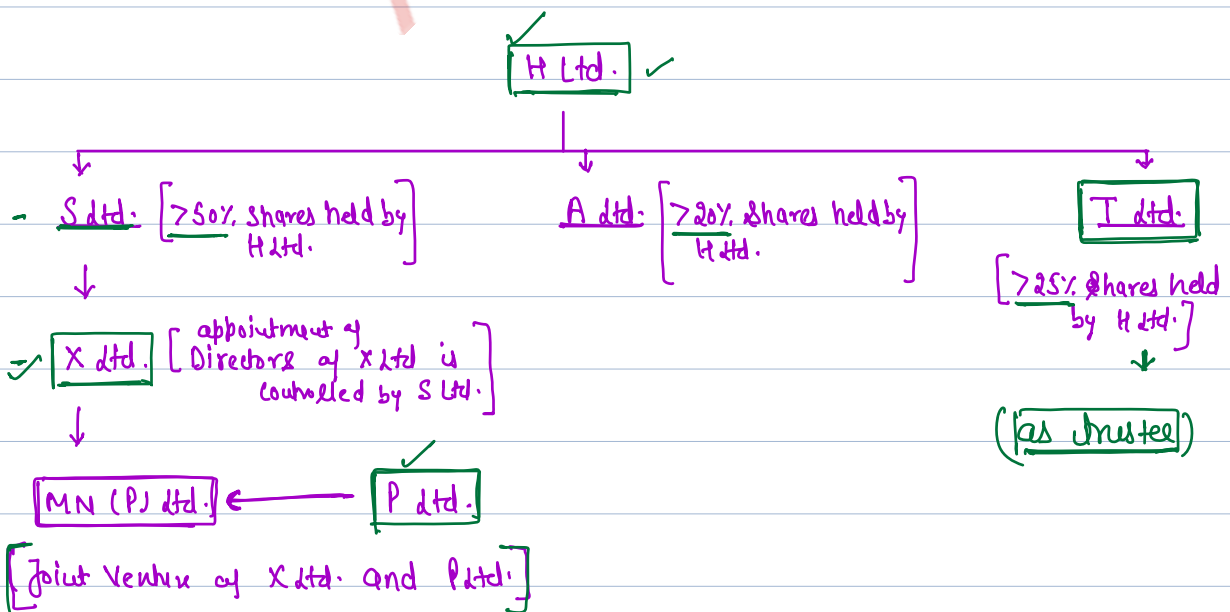 H Ltd.
S Ltd. [>50% shares held by
H Ltd.]
A Ltd. [>20% shares held by
H Ltd.]
T Ltd.
[>25% shares held
by H Ltd.]
X Ltd. [appointment of
Directors of X Ltd is
controlled by S Ltd.]
(as trustee)
MN (P) Ltd.
P Ltd.
[Joint Venture of X Ltd. and P Ltd.]